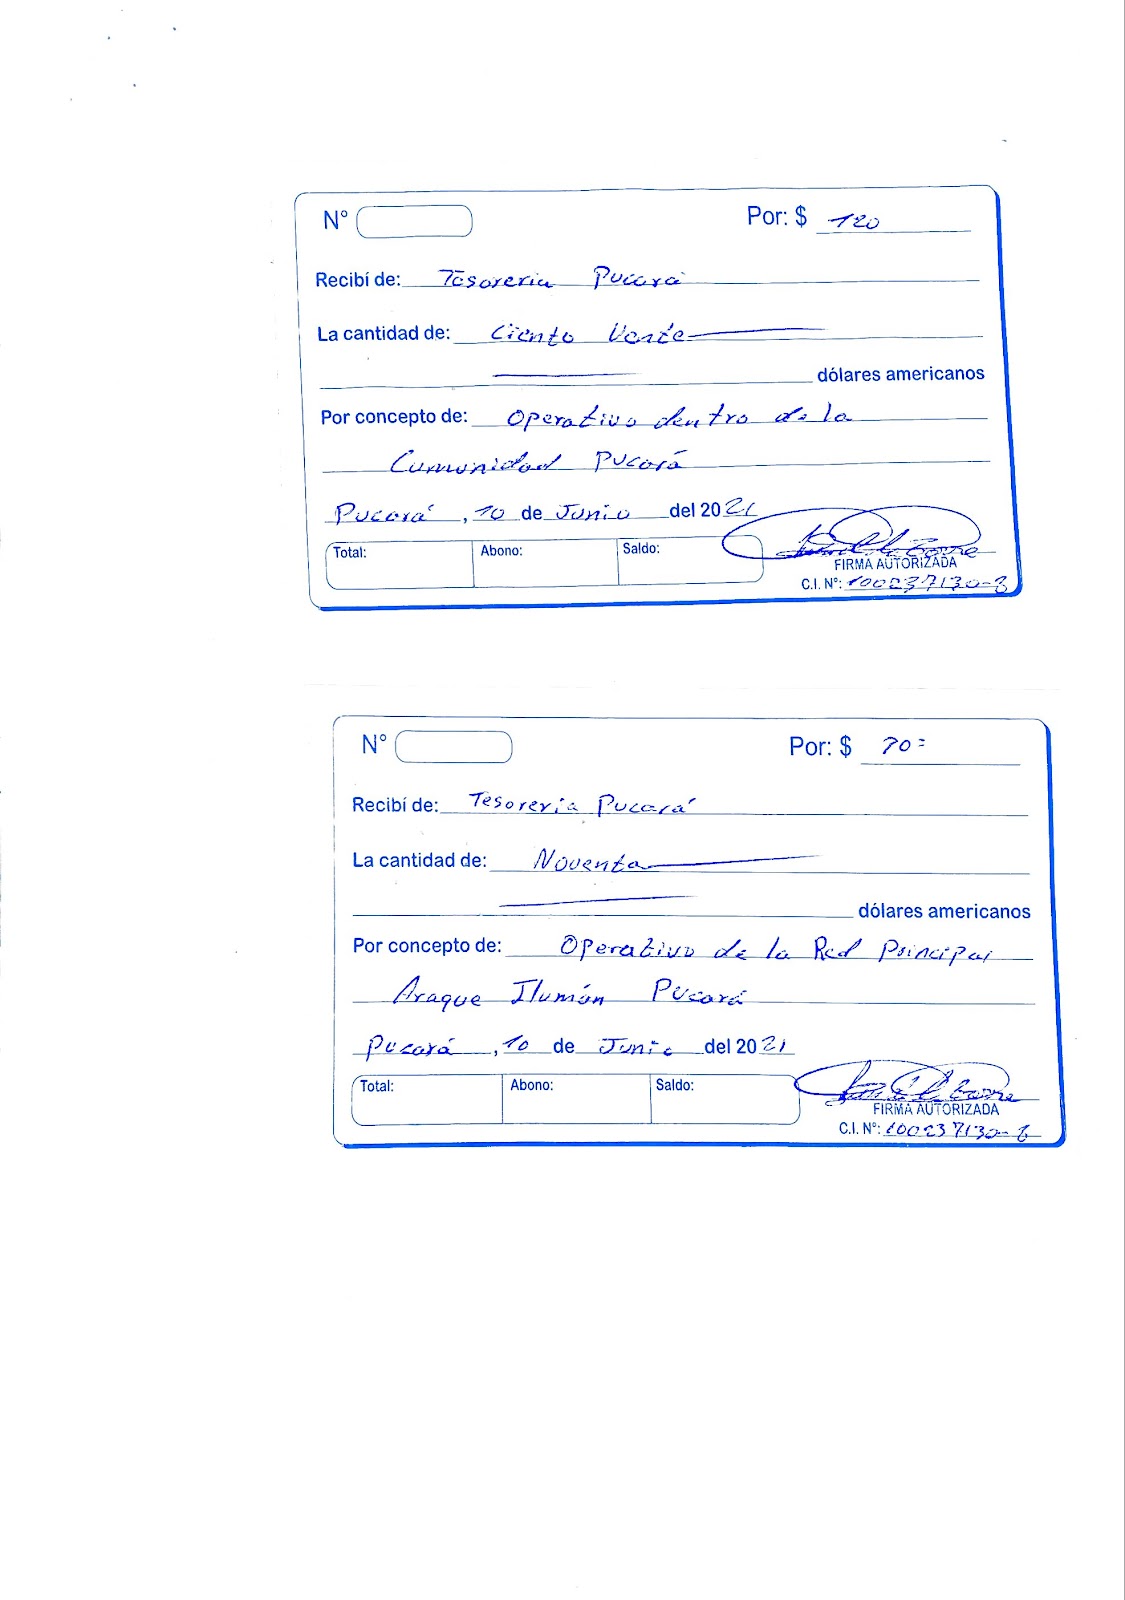 N°
Por: $ 120
Recibí de: Tesoreria Pucará
La cantidad de: Ciento Vente
dólares americanos
Por concepto de: Operativo dentro de la
Comunidad Pucará
Pucará, 10 de Junio del 2021
Total: Abono: Saldo:
FIRMA AUTORIZADA
C.I. N°: 100237130-8
N°
Por: $ 90=
Recibí de: Tesoreria Pucará
La cantidad de: Noventa
dólares americanos
Por concepto de: Operativo de la Red Principal
Araque Ilumán Pucará
Pucará, 10 de Junio del 2021
Total: Abono: Saldo:
FIRMA AUTORIZADA
C.I. N°: 100237130-8